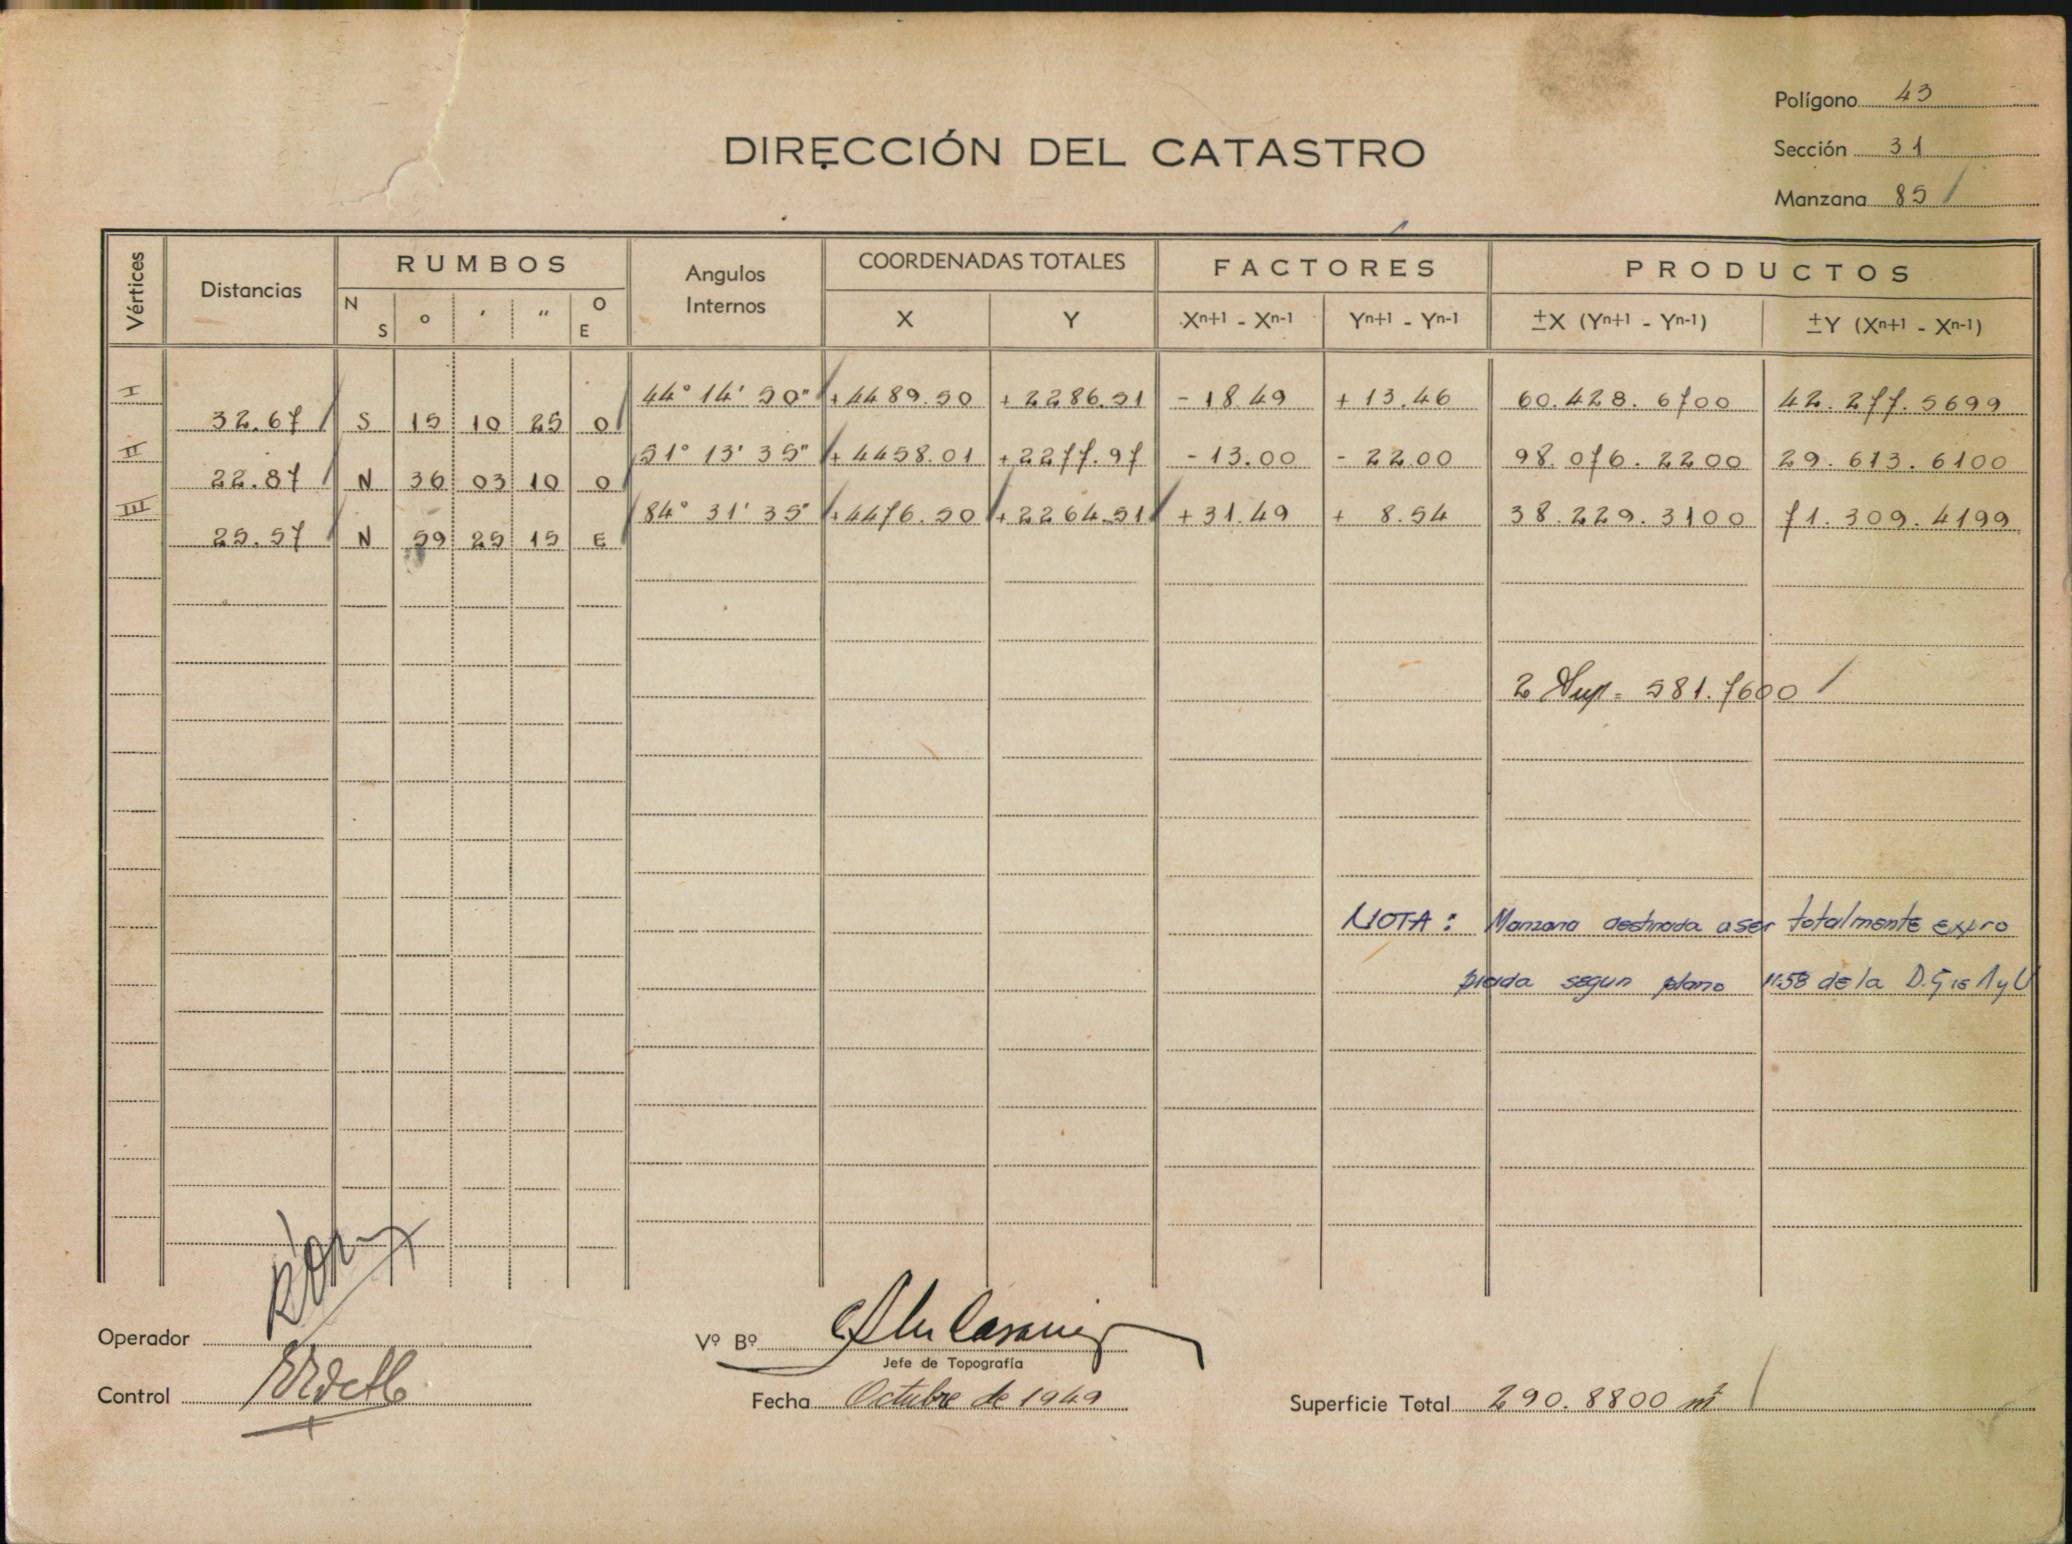 Polígono 43
DIRECCIÓN DEL CATASTRO
Sección 31
Manzana 85
Vértices Distancias RUMBOS Angulos Internos COORDENADAS TOTALES FACTORES PRODUCTOS
N S ° ' " O E X Y Xn+1 - Xn-1 Yn+1 - Yn-1 ±X (Yn+1 - Yn-1) ±Y (Xn+1 - Xn-1)
I 44° 14' 50" +4489.50 +2286.51 -18.49 +13.46 60.428.6700 42.277.5699
32.67 S 15 10 25 O
II 51° 13' 35" +4458.01 +2277.97 -13.00 -22.00 98.076.2200 29.613.6100
22.87 N 36 03 10 O
III 84° 31' 35" +4476.50 +2264.51 +31.49 + 8.54 38.229.3100 71.309.4199
25.57 N 59 25 15 E
2 Sup = 581.7600
NOTA: Manzana destinada a ser totalmente expro
piada segun plano 1158 de la D.G. de A y U
Operador
Vº Bº
Jefe de Topografía
Control
Fecha Octubre de 1949
Superficie Total 290.8800 m²